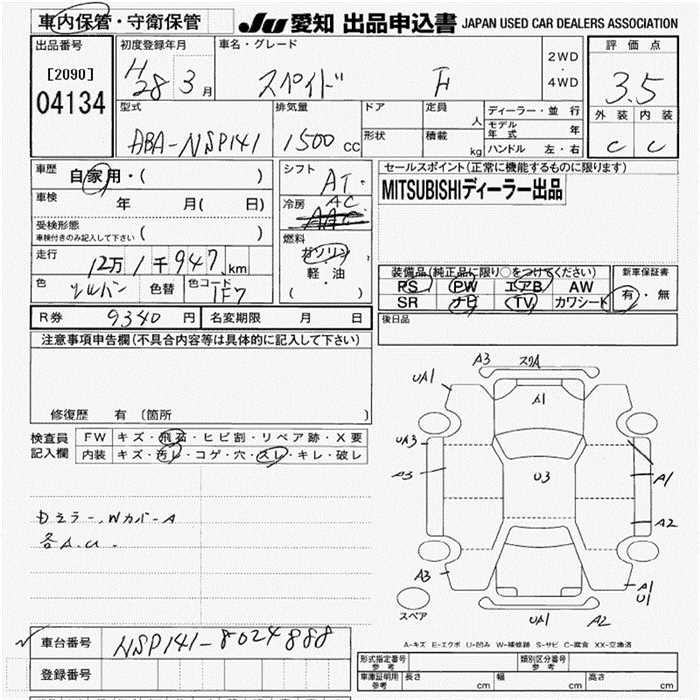 車内保管・守衛保管 JU 愛知 出品申込書 JAPAN USED CAR DEALERS ASSOCIATION
出品番号 初度登録年月 車名・グレード 評価点
[2090] H28年3月 スペイド F 2WD・4WD 3.5
04134 型式 排気量 ドア 定員 人 ディーラー・並行 外装 内装
モデル年式 年
ABA-NSP141 1500cc 形状 積載 kg ハンドル 左・右 C C
車歴 自家用・( ) シフト AT セールスポイント(正常に機能するものに限ります)
車検 年 月( 日) 冷房 AC MITSUBISHIディーラー出品
AAC
受検形態
車検付きのみ記入して下さい ( ) 燃料 ガソリン
走行 12万1千947km 軽・油 装備品(純正品に限り○をつけてください) 新車保証書
色 シルバー 色替 色コード 1F7 ( ) PS PW エアB AW 有・無
SR ナビ TV カワシート
R券 9340円 名変期限 月 日 後日品
注意事項申告欄(不具合内容等は具体的に記入して下さい)
修復歴 有 (箇所 )
検査員 FW キズ・飛石・ヒビ割・リペア跡・X要
記入欄 内装 キズ・汚レ・コゲ・穴・スレ・キレ・破レ
Dミラー、Wカバー A
各A.U.
A3 スリA
UA1 A1
UA3
A3 U3 A1
A2
A3 A1
U1
スペア UA1 A2
A-キズ E-エクボ U-凹み W-補修跡 S-サビ C-腐食 XX-交換済
車台番号 NSP141-8024888
登録番号
形式指定番号 参考 類別区分番号 参考
車庫証明用 参考 長さ cm 幅 cm 高さ cm